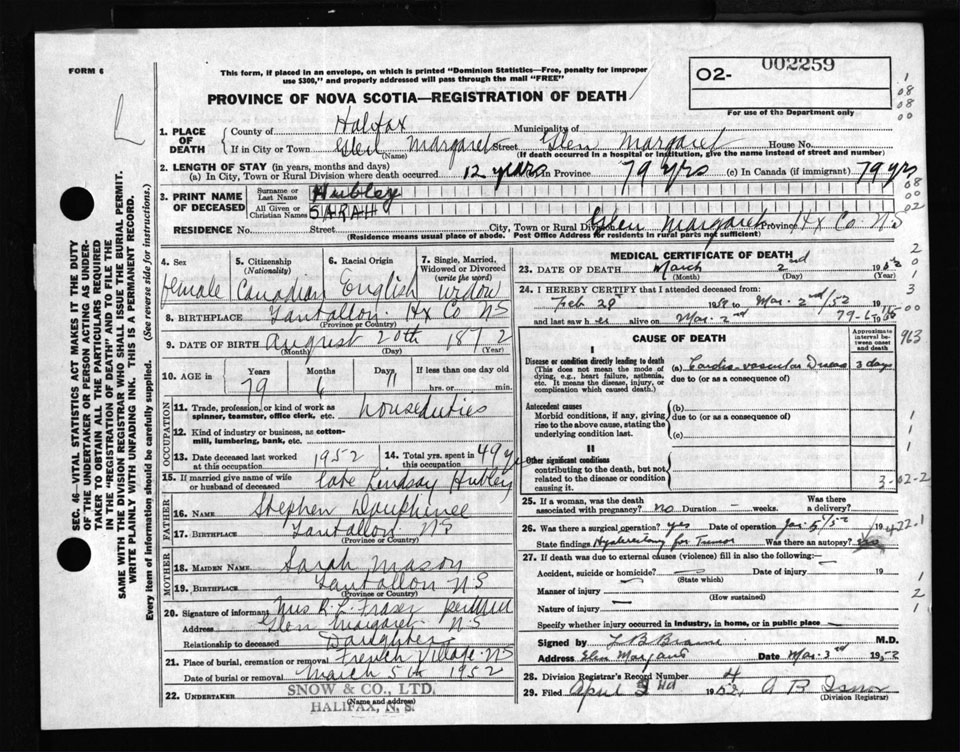 FORM 6
This form, if placed in an envelope, on which is printed "Dominion Statistics—Free, penalty for improper
use $300," and properly addressed will pass through the mail "FREE"
O2- 002259
For use of the Department only
PROVINCE OF NOVA SCOTIA—REGISTRATION OF DEATH
1. PLACE OF DEATH
County of Halifax Municipality of
If in City or Town Glen Margaret Street Glen Margaret House No.
(Name) (If death occurred in a hospital or institution, give the name instead of street and number)
2. LENGTH OF STAY (in years, months and days)
(a) In City, Town or Rural Division where death occurred 12 years In Province 79 yrs (c) In Canada (if immigrant) 79 yrs
3. PRINT NAME OF DECEASED
Surname or Last Name Hubley
All Given or Christian Names SARAH
RESIDENCE No. Street City, Town or Rural Division Glen Margaret Province Hx Co. NS
(Residence means usual place of abode. Post Office Address for residents in rural parts not sufficient)
4. Sex female
5. Citizenship (Nationality) Canadian
6. Racial Origin English
7. Single, Married, Widowed or Divorced (write the word) widow
8. BIRTHPLACE Tantallon Hx Co NS
(Province or Country)
9. DATE OF BIRTH August 20th 1872
(Month) (Day) (Year)
10. AGE in Years 79 Months 6 Days 11 If less than one day
hrs. or min.
OCCUPATION
11. Trade, profession, or kind of work as spinner, teamster, office clerk, etc. house duties
12. Kind of industry or business, as cotton-mill, lumbering, bank, etc.
13. Date deceased last worked at this occupation 1952
14. Total yrs. spent in this occupation 49 yrs
15. If married give name of wife or husband of deceased late Lindsay Hubley
FATHER
16. NAME Stephen Dauphinee
17. BIRTHPLACE Tantallon NS
(Province or Country)
MOTHER
18. MAIDEN NAME Sarah Mason
19. BIRTHPLACE Tantallon NS
(Province or Country)
20. Signature of informant Mrs R. L. Fraser
Address Glen Margaret NS
Relationship to deceased Daughter
21. Place of burial, cremation or removal French Village NS
Date of burial or removal March 5th 1952
22. UNDERTAKER SNOW & CO., LTD.
(Name and address)
HALIFAX, N. S.
MEDICAL CERTIFICATE OF DEATH
23. DATE OF DEATH March 2nd 1952
(Month) (Day) (Year)
24. I HEREBY CERTIFY that I attended deceased from:
Feb 29 to Mar. 2nd/52 19
and last saw her alive on Mar. 2nd
CAUSE OF DEATH
Approximate interval between onset and death
I
Disease or condition directly leading to death
(This does not mean the mode of dying, e.g., heart failure, asthenia, etc. It means the disease, injury, or complication which caused death.)
(a) Cardio-vascular Disease 3 days
due to (or as a consequence of)
Antecedent causes
Morbid conditions, if any, giving rise to the above cause, stating the underlying condition last.
(b)
due to (or as a consequence of)
(c)
II
Other significant conditions
contributing to the death, but not related to the disease or condition causing it.
3-02-2
25. If a woman, was the death associated with pregnancy? no Duration weeks. Was there a delivery?
26. Was there a surgical operation? yes Date of operation Jan. 5/52 19
422.1
State findings Hysterectomy for Tumor Was there an autopsy?
27. If death was due to external causes (violence) fill in also the following:—
Accident, suicide or homicide? Date of injury 19
(State which)
Manner of injury
(How sustained)
Nature of injury
Specify whether injury occurred in industry, in home, or in public place
Signed by M.D.
Address Glen Margaret Date Mar. 3rd 1952
28. Division Registrar's Record Number 4
29. Filed April 2nd 1952. A B Isnor
(Division Registrar)
963
SEC. 46—VITAL STATISTICS ACT MAKES IT THE DUTY
OF THE UNDERTAKER OR PERSON ACTING AS UNDER-
TAKER TO OBTAIN ALL THE PARTICULARS REQUIRED
IN THE "REGISTRATION OF DEATH" AND TO FILE THE
SAME WITH THE DIVISION REGISTRAR WHO SHALL ISSUE THE BURIAL PERMIT.
WRITE PLAINLY WITH UNFADING INK. THIS IS A PERMANENT RECORD.
Every item of information should be carefully supplied. (See reverse side for instructions.)